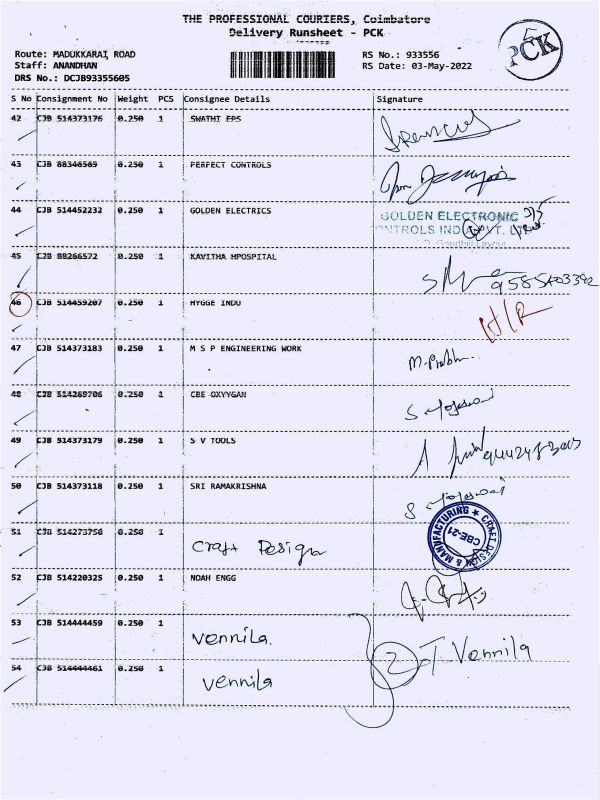 THE PROFESSIONAL COURIERS, Coimbatore
Delivery Runsheet - PCK
PCK
Route: MADUKKARAI ROAD
Staff: ANANDHAN
DRS No.: DCJB93355605
RS No.: 933556
RS Date: 03-May-2022
S No Consignment No Weight PCS Consignee Details Signature
42 CJB 514373176 0.250 1 SWATHI EPS
43 CJB 88346569 0.250 1 PERFECT CONTROLS
44 CJB 514452232 0.250 1 GOLDEN ELECTRICS
GOLDEN ELECTRONIC
CONTROLS IND PVT. LTD
45 CJB 88266572 0.250 1 KAVITHA HPOSPITAL
46 CJB 514459207 0.250 1 HYGGE INDU
47 CJB 514373183 0.250 1 M S P ENGINEERING WORK M. Prabhu
48 CJB 514269706 0.250 1 CBE OXYYGAN
49 CJB 514373179 0.250 1 S V TOOLS
50 CJB 514373118 0.250 1 SRI RAMAKRISHNA
51 CJB 514273758 0.250 1 Craft Design
CRAFT DESIGN & MANUFACTURING ★ CBE-21
52 CJB 514220325 0.250 1 NOAH ENGG
53 CJB 514444459 0.250 1 Vennila.
2 T. Vennila
54 CJB 514444461 0.250 1 Vennila